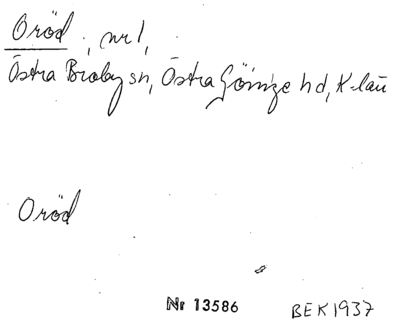 Oröd, nr 1,
Östra Broby sn, Östra Göinge hd, K-län
Oröd
Nr 13586 BEK 1937